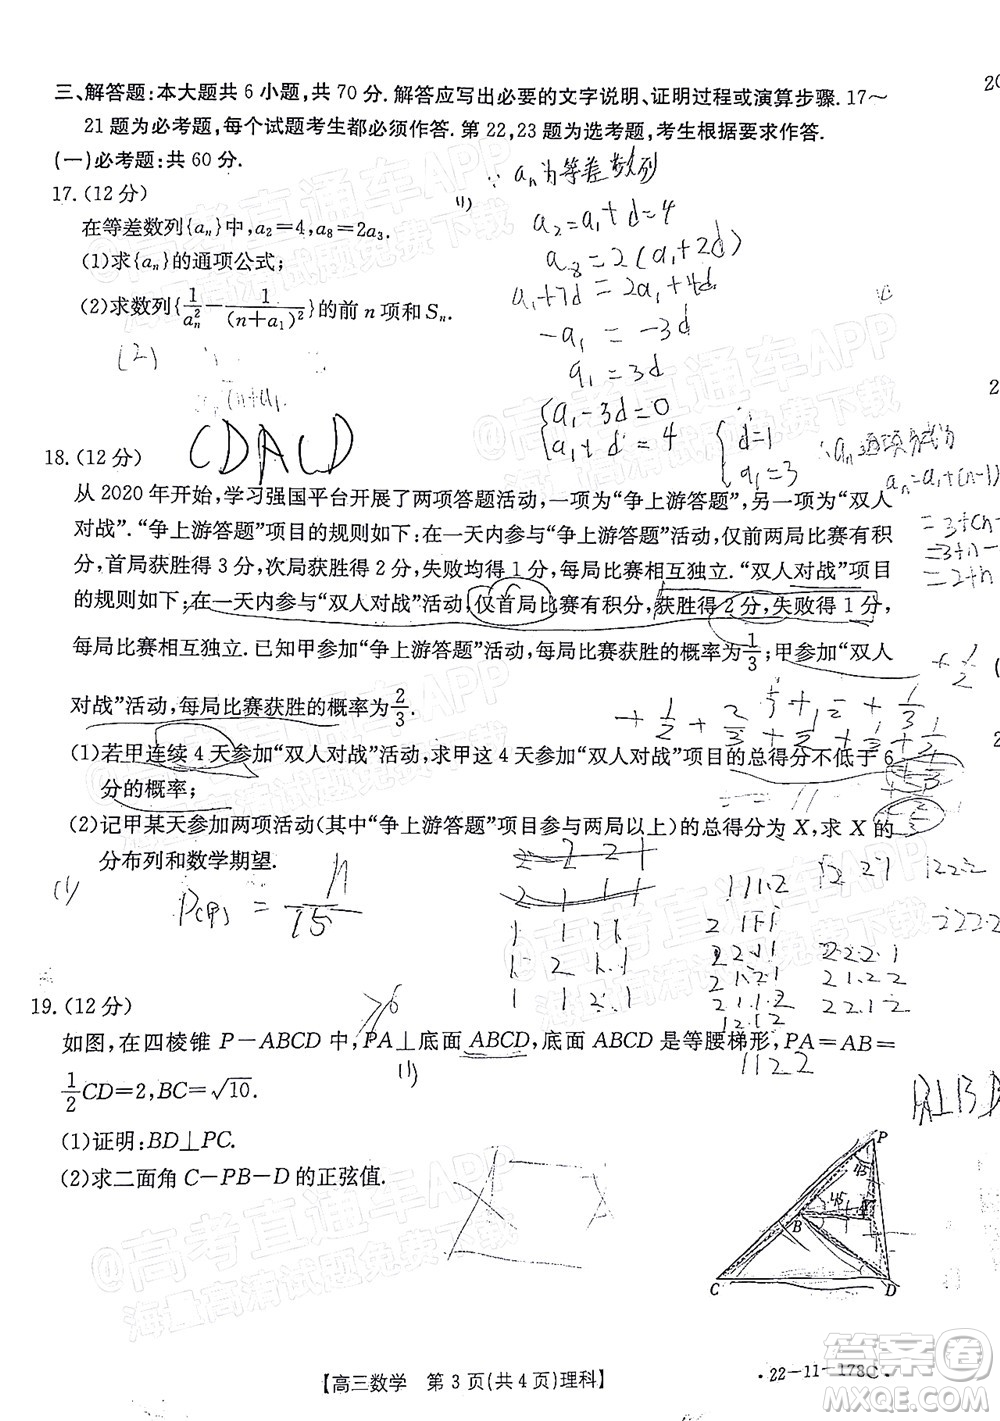 三、解答题:本大题共 6 小题,共 70 分.解答应写出必要的文字说明、证明过程或演算步骤.17～
21 题为必考题,每个试题考生都必须作答.第 22,23 题为选考题,考生根据要求作答.
(一)必考题:共 60 分.
17.(12 分)
在等差数列{aₙ}中,a₂=4,a₈=2a₃.
(1)求{aₙ}的通项公式;
(2)求数列{1/aₙ² − 1/(n+a₁)²}的前 n 项和 Sₙ.
∵ aₙ为等差数列
(1)
a₂=a₁+d=4
a₈=2(a₁+2d)
a₁+7d=2a₁+4d
-a₁=-3d
a₁=3d
a₁-3d=0
a₁+d=4
d=1
a₁=3
∴aₙ通项公式为
aₙ=a₁+(n-1)
=3+(n-
=3+n-
=2+n
(2)
CDACD
18.(12 分)
从 2020 年开始,学习强国平台开展了两项答题活动,一项为“争上游答题”,另一项为“双人
对战”.“争上游答题”项目的规则如下:在一天内参与“争上游答题”活动,仅前两局比赛有积
分,首局获胜得 3 分,次局获胜得 2 分,失败均得 1 分,每局比赛相互独立.“双人对战”项目
的规则如下:在一天内参与“双人对战”活动,仅首局比赛有积分,获胜得 2 分,失败得 1 分,
每局比赛相互独立.已知甲参加“争上游答题”活动,每局比赛获胜的概率为1/3;甲参加“双人
对战”活动,每局比赛获胜的概率为2/3.
(1)若甲连续 4 天参加“双人对战”活动,求甲这 4 天参加“双人对战”项目的总得分不低于 6
分的概率;
(2)记甲某天参加两项活动(其中“争上游答题”项目参与两局以上)的总得分为 X,求 X 的
分布列和数学期望.
(1)
P(甲) = 11/15
19.(12 分)
如图,在四棱锥 P−ABCD 中,PA⊥底面 ABCD,底面 ABCD 为等腰梯形,PA=AB=
1/2CD=2,BC=√10.
(1)
1122
(1)证明:BD⊥PC.
(2)求二面角 C−PB−D 的正弦值.
PA⊥BD
P
45
45
B
C
D
【高三数学　第 3 页(共 4 页)理科】
·22−11−178C·
@高考直通车APP
海量高清试题免费下载
答案圈
MXQE.COM